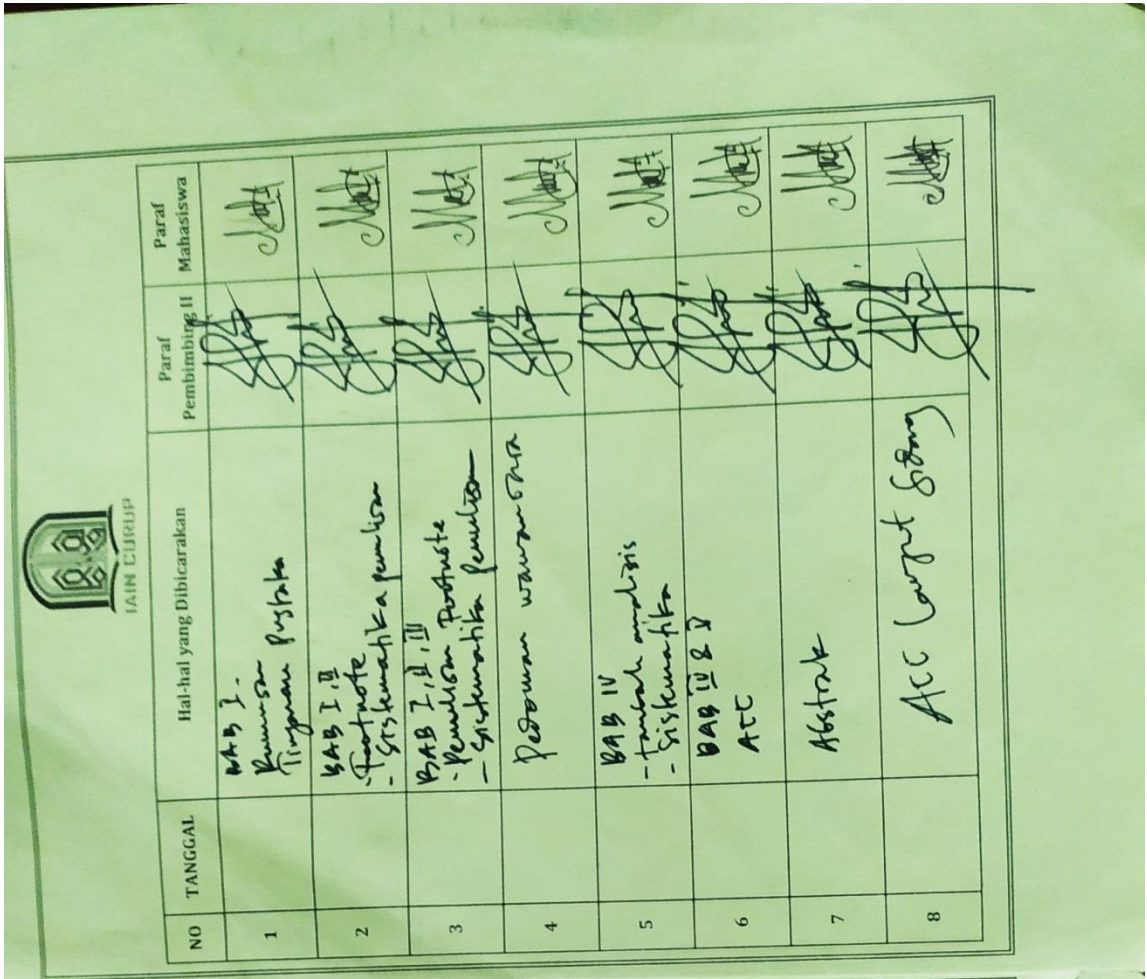 IAIN CURUP
NO
TANGGAL
Hal-hal yang Dibicarakan
Paraf
Pembimbing II
Paraf
Mahasiswa
1
BAB I -
Rumusan
Tinjauan Pustaka
2
BAB I, II
- Footnote
- Sistematika penulisan
3
BAB I, II, III
- Penulisan Footnote
- Sistematika penulisan
4
Pedoman wawancara
5
BAB IV
- tambah analisis
- Sistematika
6
BAB IV & V
ACC
7
Abstrak
8
ACC Lanjut Sidang